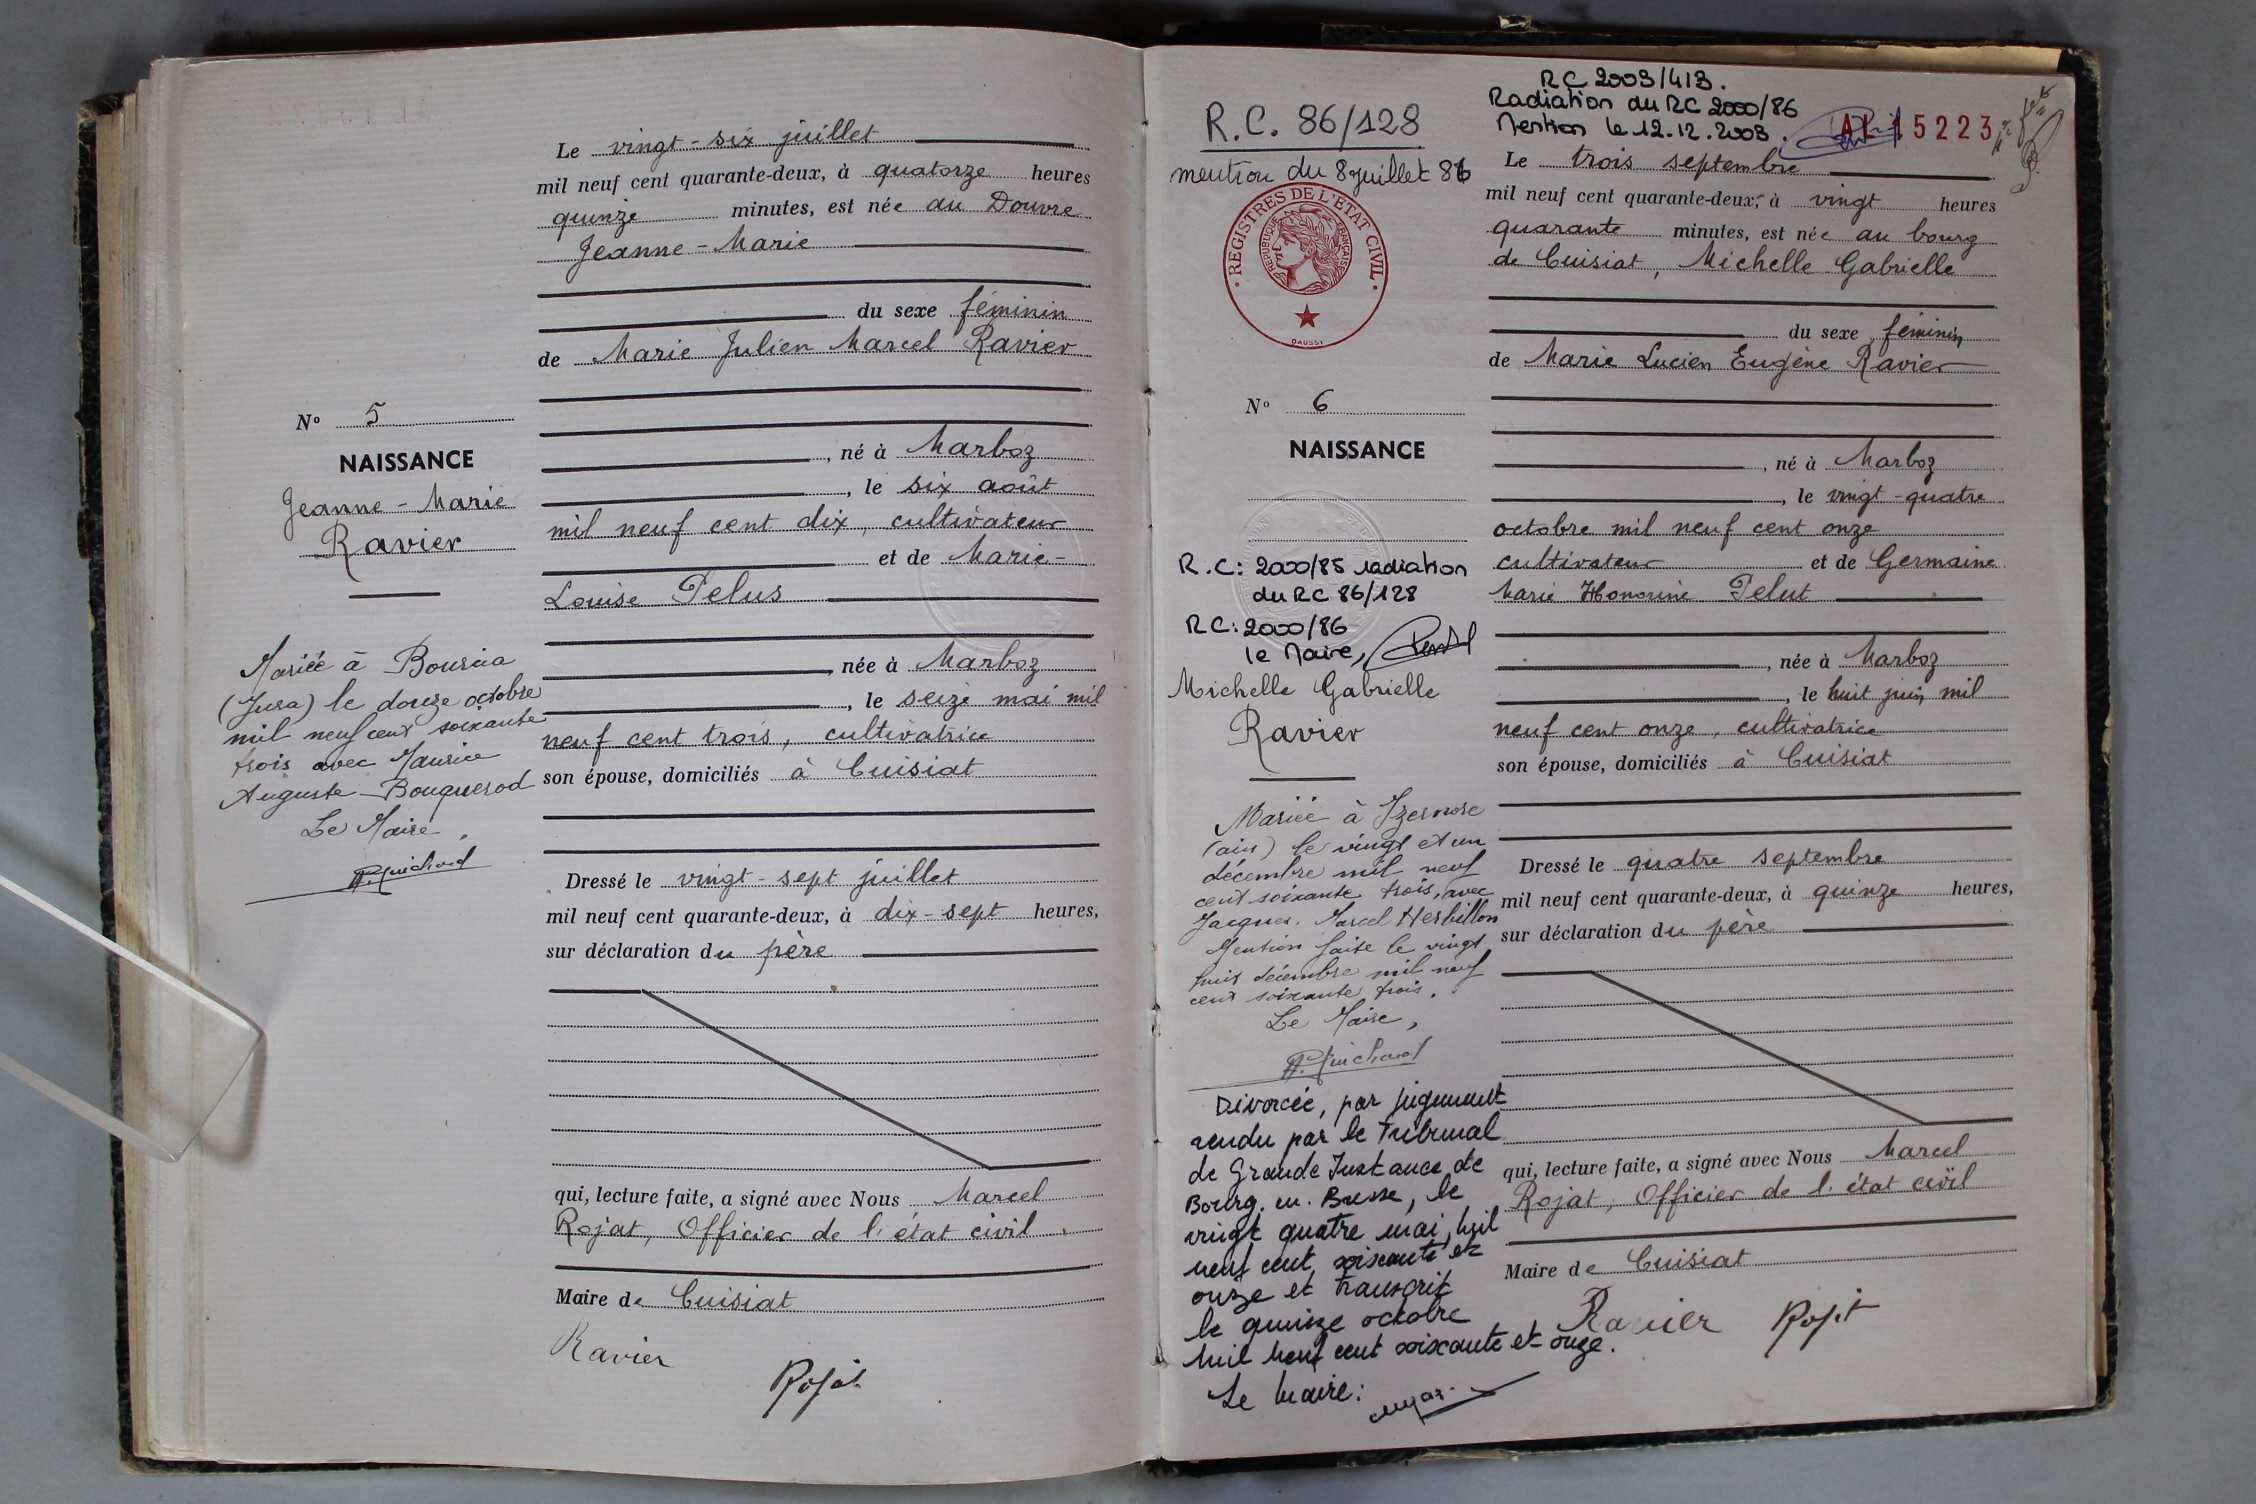 Le vingt-six juillet
mil neuf cent quarante-deux, à quatorze heures
quinze minutes, est née au Douvre
Jeanne-Marie
du sexe féminin
de Marie Julien Marcel Ravier
, né à Marboz
, le six août
mil neuf cent dix, cultivateur
et de Marie-
Louise Pelus
, née à Marboz
, le seize mai mil
neuf cent trois, cultivatrice
son épouse, domiciliés à Cuisiat
Dressé le vingt-sept juillet
mil neuf cent quarante-deux, à dix-sept heures,
sur déclaration du père
qui, lecture faite, a signé avec Nous Marcel
Rojat, Officier de l'état civil
Maire de Cuisiat
Ravier
Rojat
No 5
NAISSANCE
Jeanne-Marie
Ravier
Mariée à Bourcia
(Jura) le douze octobre
mil neuf cent soixante
trois avec Maurice
Auguste Bouquerod
Le Maire,
P. Guichard
R.C. 86/128
mention du 8 juillet 86
REGISTRES DE L'ETAT CIVIL
REPUBLIQUE FRANÇAISE
DAUSSI
RC 2003/413.
Radiation du RC 2000/86
Mention le 12.12.2003.
AL 15223
Le trois septembre
mil neuf cent quarante-deux, à vingt heures
quarante minutes, est née au bourg
de Cuisiat, Michelle Gabrielle
du sexe féminin
de Marie Lucien Eugène Ravier
, né à Marboz
, le vingt-quatre
octobre mil neuf cent onze
cultivateur et de Germaine
Marie Honorine Pelut
, née à Marboz
, le huit juin mil
neuf cent onze, cultivatrice
son épouse, domiciliés à Cuisiat
Dressé le quatre septembre
mil neuf cent quarante-deux, à quinze heures,
sur déclaration du père
qui, lecture faite, a signé avec Nous Marcel
Rojat, Officier de l'état civil
Maire de Cuisiat
Ravier Rojat
No 6
NAISSANCE
R.C: 2000/85 radiation
du RC 86/128
RC: 2000/86
le Maire,
Michelle Gabrielle
Ravier
Mariée à Izernore
(ain) le vingt et un
décembre mil neuf
cent soixante trois, avec
Jacques Marcel Herbillon
Mention faite le vingt
huit décembre mil neuf
cent soixante trois.
Le Maire,
P. Guichard
Divorcée, par jugement
rendu par le Tribunal
de Grande Instance de
Bourg. en. Bresse, le
vingt quatre mai, mil
neuf cent soixante et
onze et transcrit
le quinze octobre
mil neuf cent soixante et onze.
Le Maire: